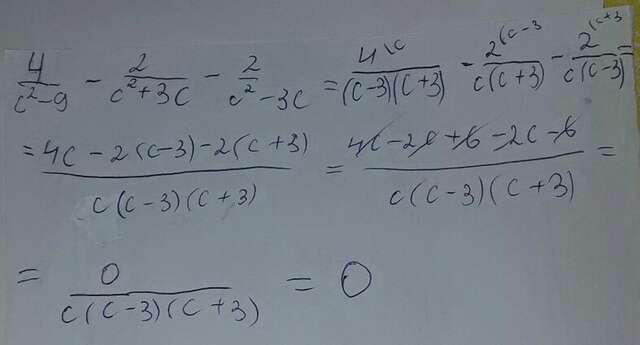 4/(c²-9) - 2/(c²+3c) - 2/(c²-3c) = 4^(c/((c-3)(c+3)) - 2^(c-3/(c(c+3)) - 2^(c+3/(c(c-3)) =
= (4c-2(c-3)-2(c+3))/(c(c-3)(c+3)) = (4c-2c+6-2c-6)/(c(c-3)(c+3)) =
= 0/(c(c-3)(c+3)) = 0